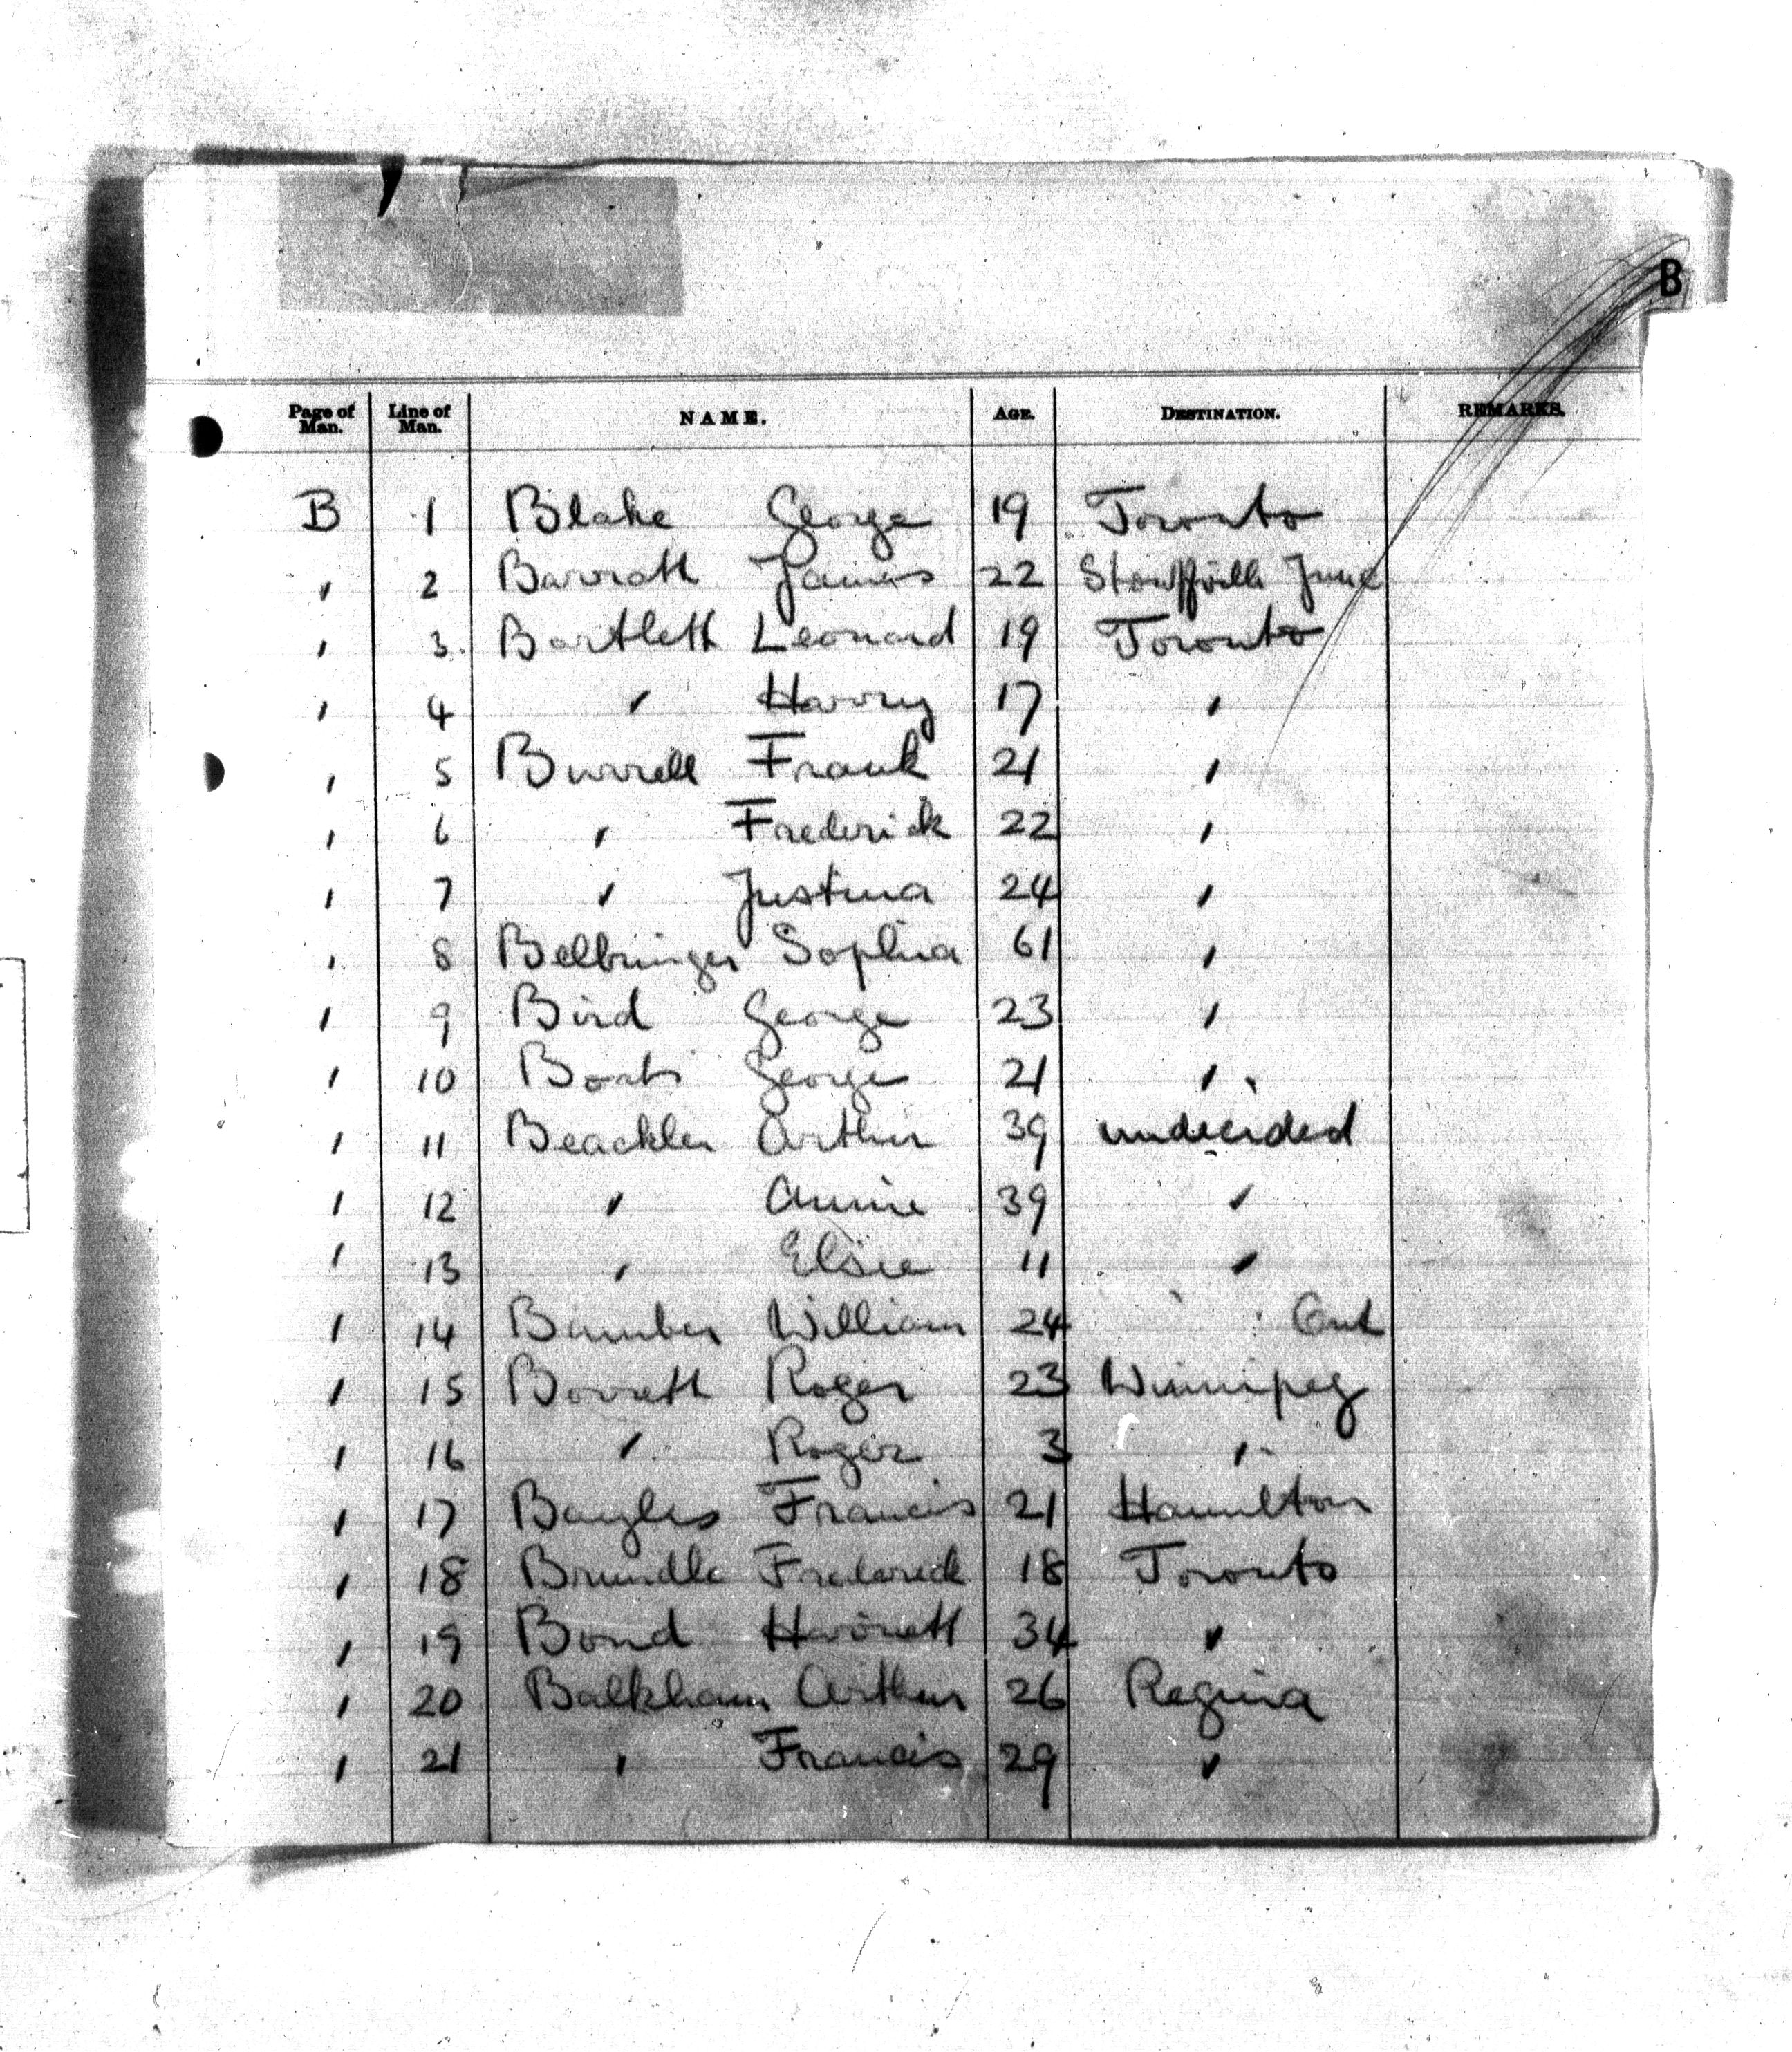 B
Page of Man. Line of Man. NAME. AGE. DESTINATION. REMARKS.
B 1 Blake George 19 Toronto
" 2 Barratt James 22 Stouffville Junc
" 3 Bartlett Leonard 19 Toronto
" 4 " Harry 17 "
" 5 Burrell Frank 21 "
" 6 " Frederick 22 "
" 7 " Justina 24 "
" 8 Bellringer Sophia 61 "
" 9 Bird George 23 "
" 10 George 21 "
" 11 Beackler Arthur 39 undecided
" 12 " Annie 39 "
" 13 " Elsie 11 "
" 14 Bamber William 24 Ont
" 15 Borrett Roger 23 Winnipeg
" 16 " Roger 3 "
" 17 Bayles Francis 21 Hamilton
" 18 Brundle Frederick 18 Toronto
" 19 Bond Harriett 34 "
" 20 Balkham Arthur 26 Regina
" 21 " Francis 29 "